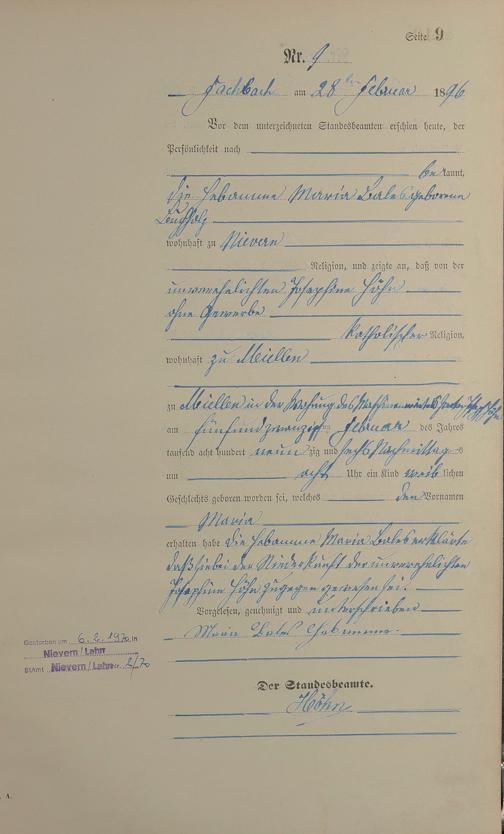 Seite 9
Nr. 9
Fachbach am 28ten Februar 1896
Vor dem unterzeichneten Standesbeamten erschien heute, der
Persönlichkeit nach
bekannt,
die Hebamme Maria Bales geborene
Buchholz
wohnhaft zu Nievern
Religion, und zeigte an, daß von der
unverehelichten Josephine Höhn
ohne Gewerbe
katholischer Religion,
wohnhaft zu Miellen
zu Miellen in der Wohnung des
am fünfundzwanzigsten Februar des Jahres
tausend acht hundert neunzig und sechs Nachmittags
um acht Uhr ein Kind weiblichen
Geschlechts geboren worden sei, welches den Vornamen
Maria
erhalten habe die Hebamme Maria Bales erklärte
daß sie bei der Niederkunft der unverehelichten
Josephine Höhn zugegen gewesen sei.
Vorgelesen, genehmigt und unterschrieben
Maria Bales Hebamme.
Gestorben am 6.2.1970 in
Nievern/Lahn
StAmt Nievern/Lahn Nr. 2/70
Der Standesbeamte.
Höhn
A.